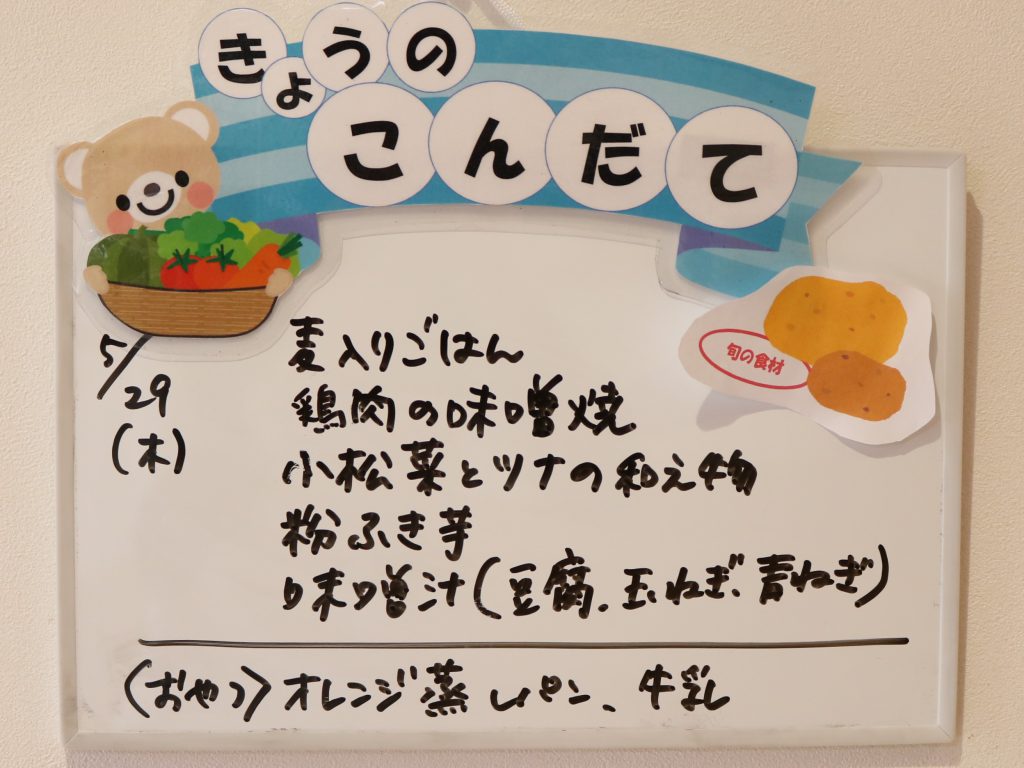 きょうの
こんだて
旬の食材
5/29
(木)
麦入りごはん
鶏肉の味噌焼
小松菜とツナの和え物
粉ふき芋
味噌汁(豆腐、玉ねぎ、青ねぎ)
〈おやつ〉オレンジ蒸しパン、牛乳